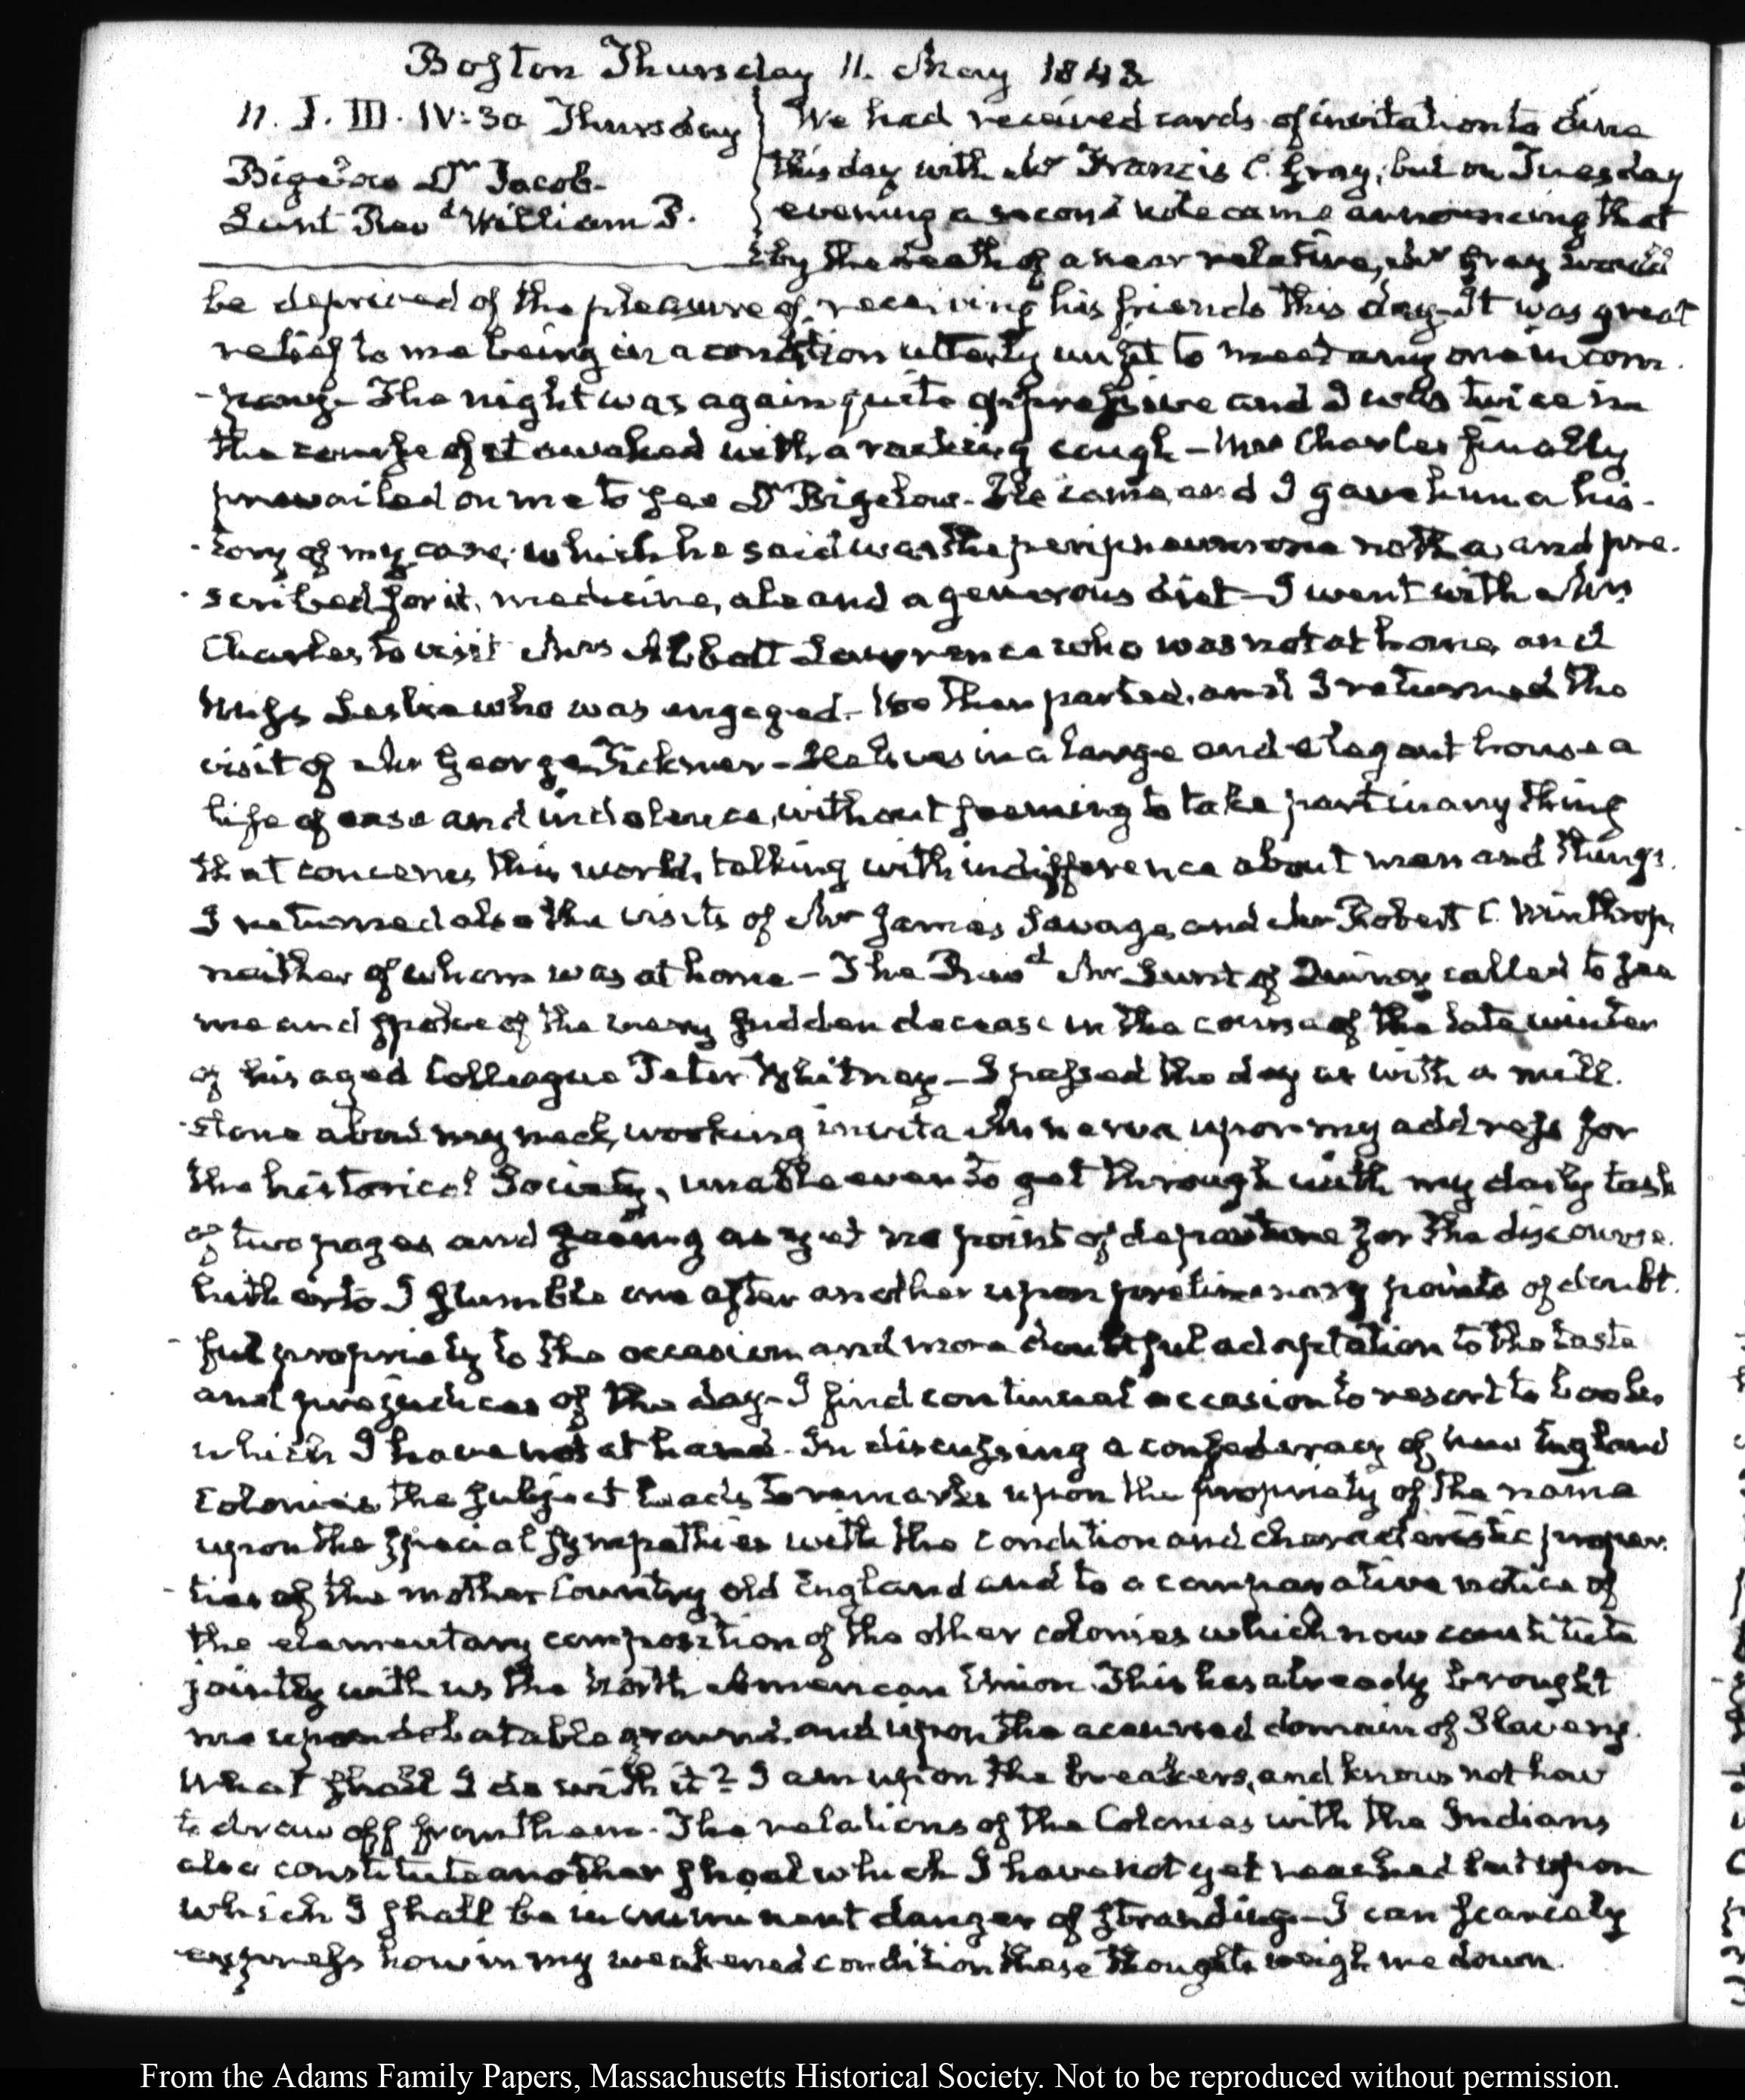 Boston Thursday 11. May 1843
11. I. III. IV:30 Thursday
Bigelow Dr Jacob.
Lunt Revd William P.
We had received cards of invitation to dine
this day with Mr Francis C. Gray; but on Tuesday
evening a second note came announcing that
by the death of a near relative, Mr Gray would
be deprived of the pleasure of receiving his friends this day. It was great
relief to me being in a condition utterly unfit to meet any one in com-
-pany. The night was again quite oppressive and I was twice in
the course of it awaked with a racking cough - Mrs Charles finally
prevailed on me to see Dr Bigelow. He came, and I gave him a his-
-tory of my case; which he said was the peripneumonia notha, and pre-
-scribed for it, medicine, ale and a generous diet - I went with Mrs
Charles, to visit Mrs Abbott Lawrence who was not at home, and
Miss Leslie who was engaged - We then parted, and I returned the
visit of Mr George Ticknor - He lives in a large and elegant house a
life of ease and indolence, without seeming to take part in any thing
that concerns this world, talking with indifference about men and things.
I returned also the visits of Mr James Savage, and Mr Robert C. Winthrop,
neither of whom was at home - The Revd Mr Lunt of Quincy called to see
me and spoke of the very sudden decease in the course of the late winter
of his aged Colleague Peter Whitney - I passed the day as with a mill-
-stone about my neck, working invita Minerva upon my address for
the historical Society, unable even to get through with my daily task
of two pages and seeing as yet no point of departure for the discourse.
hitherto I stumble one after another upon preliminary points of doubt-
-ful propriety to the occasion and more doubtful adaptation to the taste
and prejudices of the day - I find continual occasion to resort to books
which I have not at hand. In discussing a confederacy of new England
Colonies the subject leads to remarks upon the propriety of the name
upon the special sympathies with the condition and characteristic proper-
-ties of the mother Country old England and to a comparative notice of
the elementary composition of the other colonies which now constitute
jointly with us the North American Union. This has already brought
me upon debatable ground, and upon the accursed domain of Slavery.
What shall I do with it? I am upon the breakers, and know not how
to draw off from them. The relations of the Colonies with the Indians
also constitute another shoal which I have not yet reached but upon
which I shall be in imminent danger of stranding - I can scarcely
express how in my weakened condition these thoughts weigh me down.
From the Adams Family Papers, Massachusetts Historical Society. Not to be reproduced without permission.